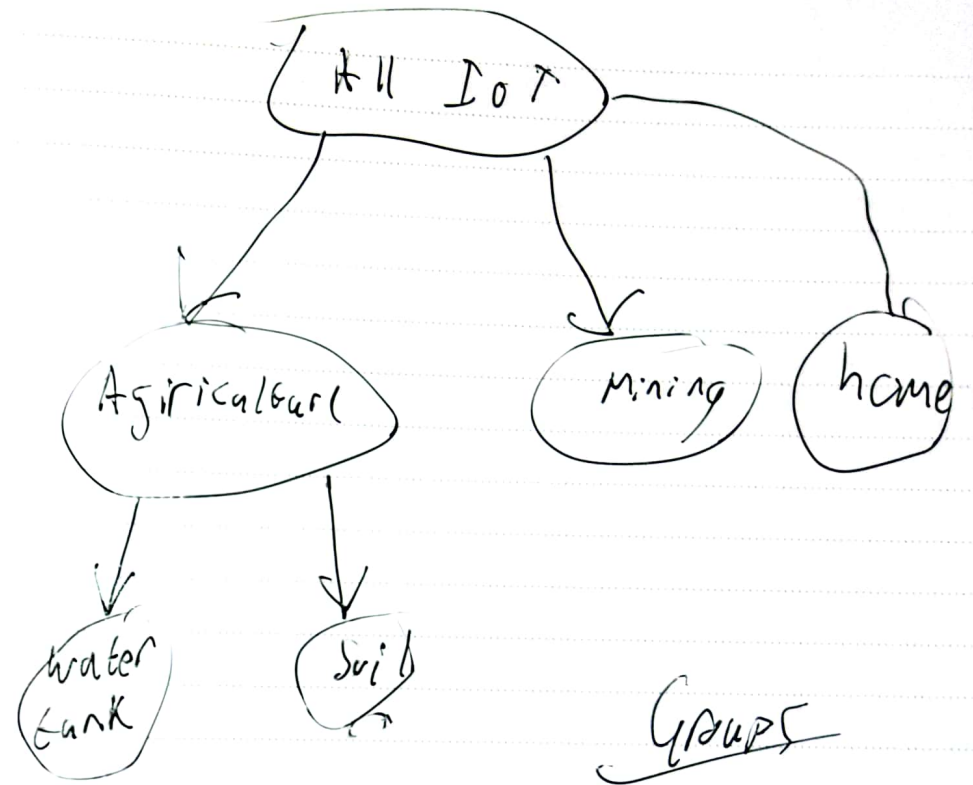 All IoT
Agiriculture
Mining
home
water
tank
Soil
Groups